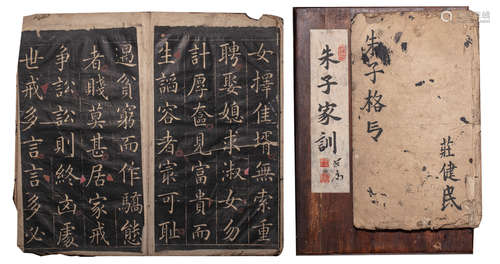 女擇佳壻無索重
聘娶媳求淑女勿
計厚奩見富貴而
生謟容者㝡可耻
遇貧窮而作驕態
者賤莫甚居家戒
争訟訟則終凶處
世戒多言言多必
朱子格言
莊健民
朱子家訓